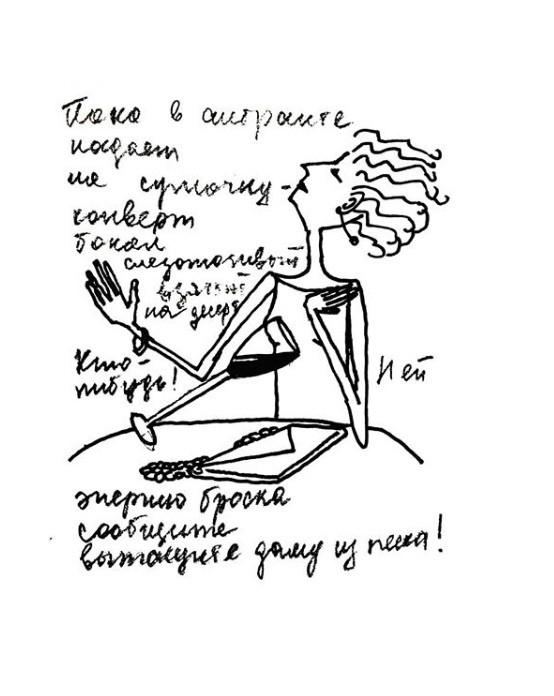 Пока в антракте
падает
на сумочку-
конверт
бокал
слезоточивый
взятый
на десерт
Кто-
нибудь! И ей
энергию броска
сообщите
вытащите даму из пике!